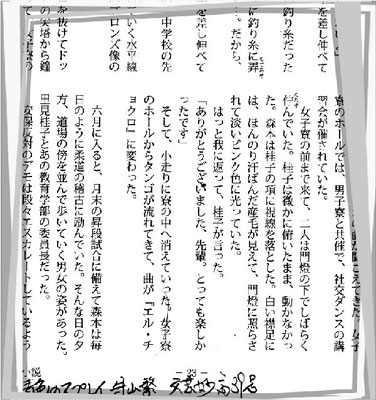 を差し伸べて
釣り糸だった
に釣り糸に弄
。だから、
を差し伸べて
中学校の先
いく水平線
ブロンズ像の
を抜けてドッ
が聞こえてきた。女子
寮のホールでは、男子寮と共催で、社交ダンスの講
習会が催されていた。
女子寮の前まで来て、二人は門燈の下でしばらく
佇んでいた。桂子は微かに俯いたまま、動かなかっ
た。森本は桂子の項に視線を落とした。白い襟足に
は、ほんのり汗ばんだ産毛が見えて、門燈に照らさ
れて淡いピンク色に光っていた。
はっと我に返って、桂子が言った。
「ありがとうございました、先輩。とっても楽しか
ったです」
そして、小走りに寮の中へ消えていった。女子寮
のホールからタンゴが流れてきて、曲が『エル・チ
ョクロ』に変わった。
六月に入ると、月末の昇段試合に備えて森本は毎
日のように柔道の稽古に励んでいた。そんな日の夕
方、道場の傍を並んで歩いていく男女の姿があった。
里見桂子とあの教育学部の委員長だった。
安保反対のデモは段々エスカレートしているよう
— 23 —
小説
牛山繁